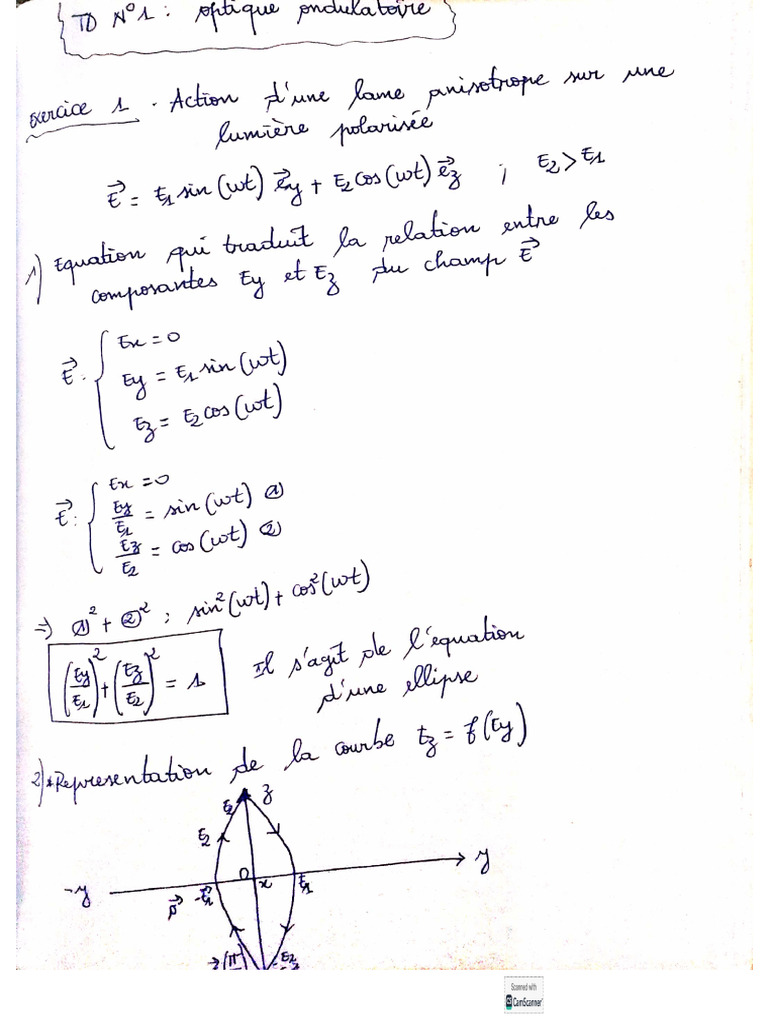 TD N°1 : optique ondulatoire
Exercice 1 . Action d'une lame anisotrope sur une
lumière polarisée
E⃗ = E₁ sin(wt) e⃗y + E₂ cos(wt) e⃗z ; E₂ > E₁
1) Equation qui traduit la relation entre les
composantes Ey et Ez du champ E⃗
E⃗ : { Ex = 0
Ey = E₁ sin(wt)
Ez = E₂ cos(wt)
E⃗ : { Ex = 0
Ey/E₁ = sin(wt) ①
Ez/E₂ = cos(wt) ②
=> ①² + ②² : sin²(wt) + cos²(wt)
(Ey/E₁)² + (Ez/E₂)² = 1 Il s'agit de l'equation
d'une ellipse
2) * Representation de la courbe Ez = f(Ey)
E₂ z
E₂
-y P⃗ -E₁ O x E₁ y
(π -E₂
Scanned with
CS CamScanner